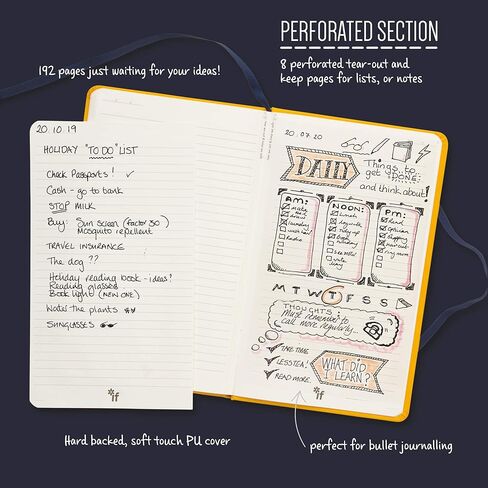 PERFORATED SECTION
8 perforated tear-out and
keep pages for lists, or notes
192 pages just waiting for your ideas!
20.10.19
HOLIDAY "TO DO" LIST
Check Passports! ✓
Cash - go to bank
STOP MILK
Buy: Sun screen (factor 30)
Mosquito repellent
TRAVEL INSURANCE
The dog ??
Holiday reading book - ideas?
Reading glasses
Book light (NEW ONE)
Water the plants
SUNGLASSES
*if
20.07.20
DAILY
Things to
get DONE
and think about!
AM:
make
bed
laundry
wash
Radio
NOON:
lunch
tidy up
holiday
PM:
shopping
ring mum
M T W T F S S
THOUGHTS:
Must remember to
call more regularly...
TAKE TIME.
LESS TEA!
READ MORE.
WHAT DID
I LEARN?
*if
Hard backed, soft touch PU cover
perfect for bullet journalling